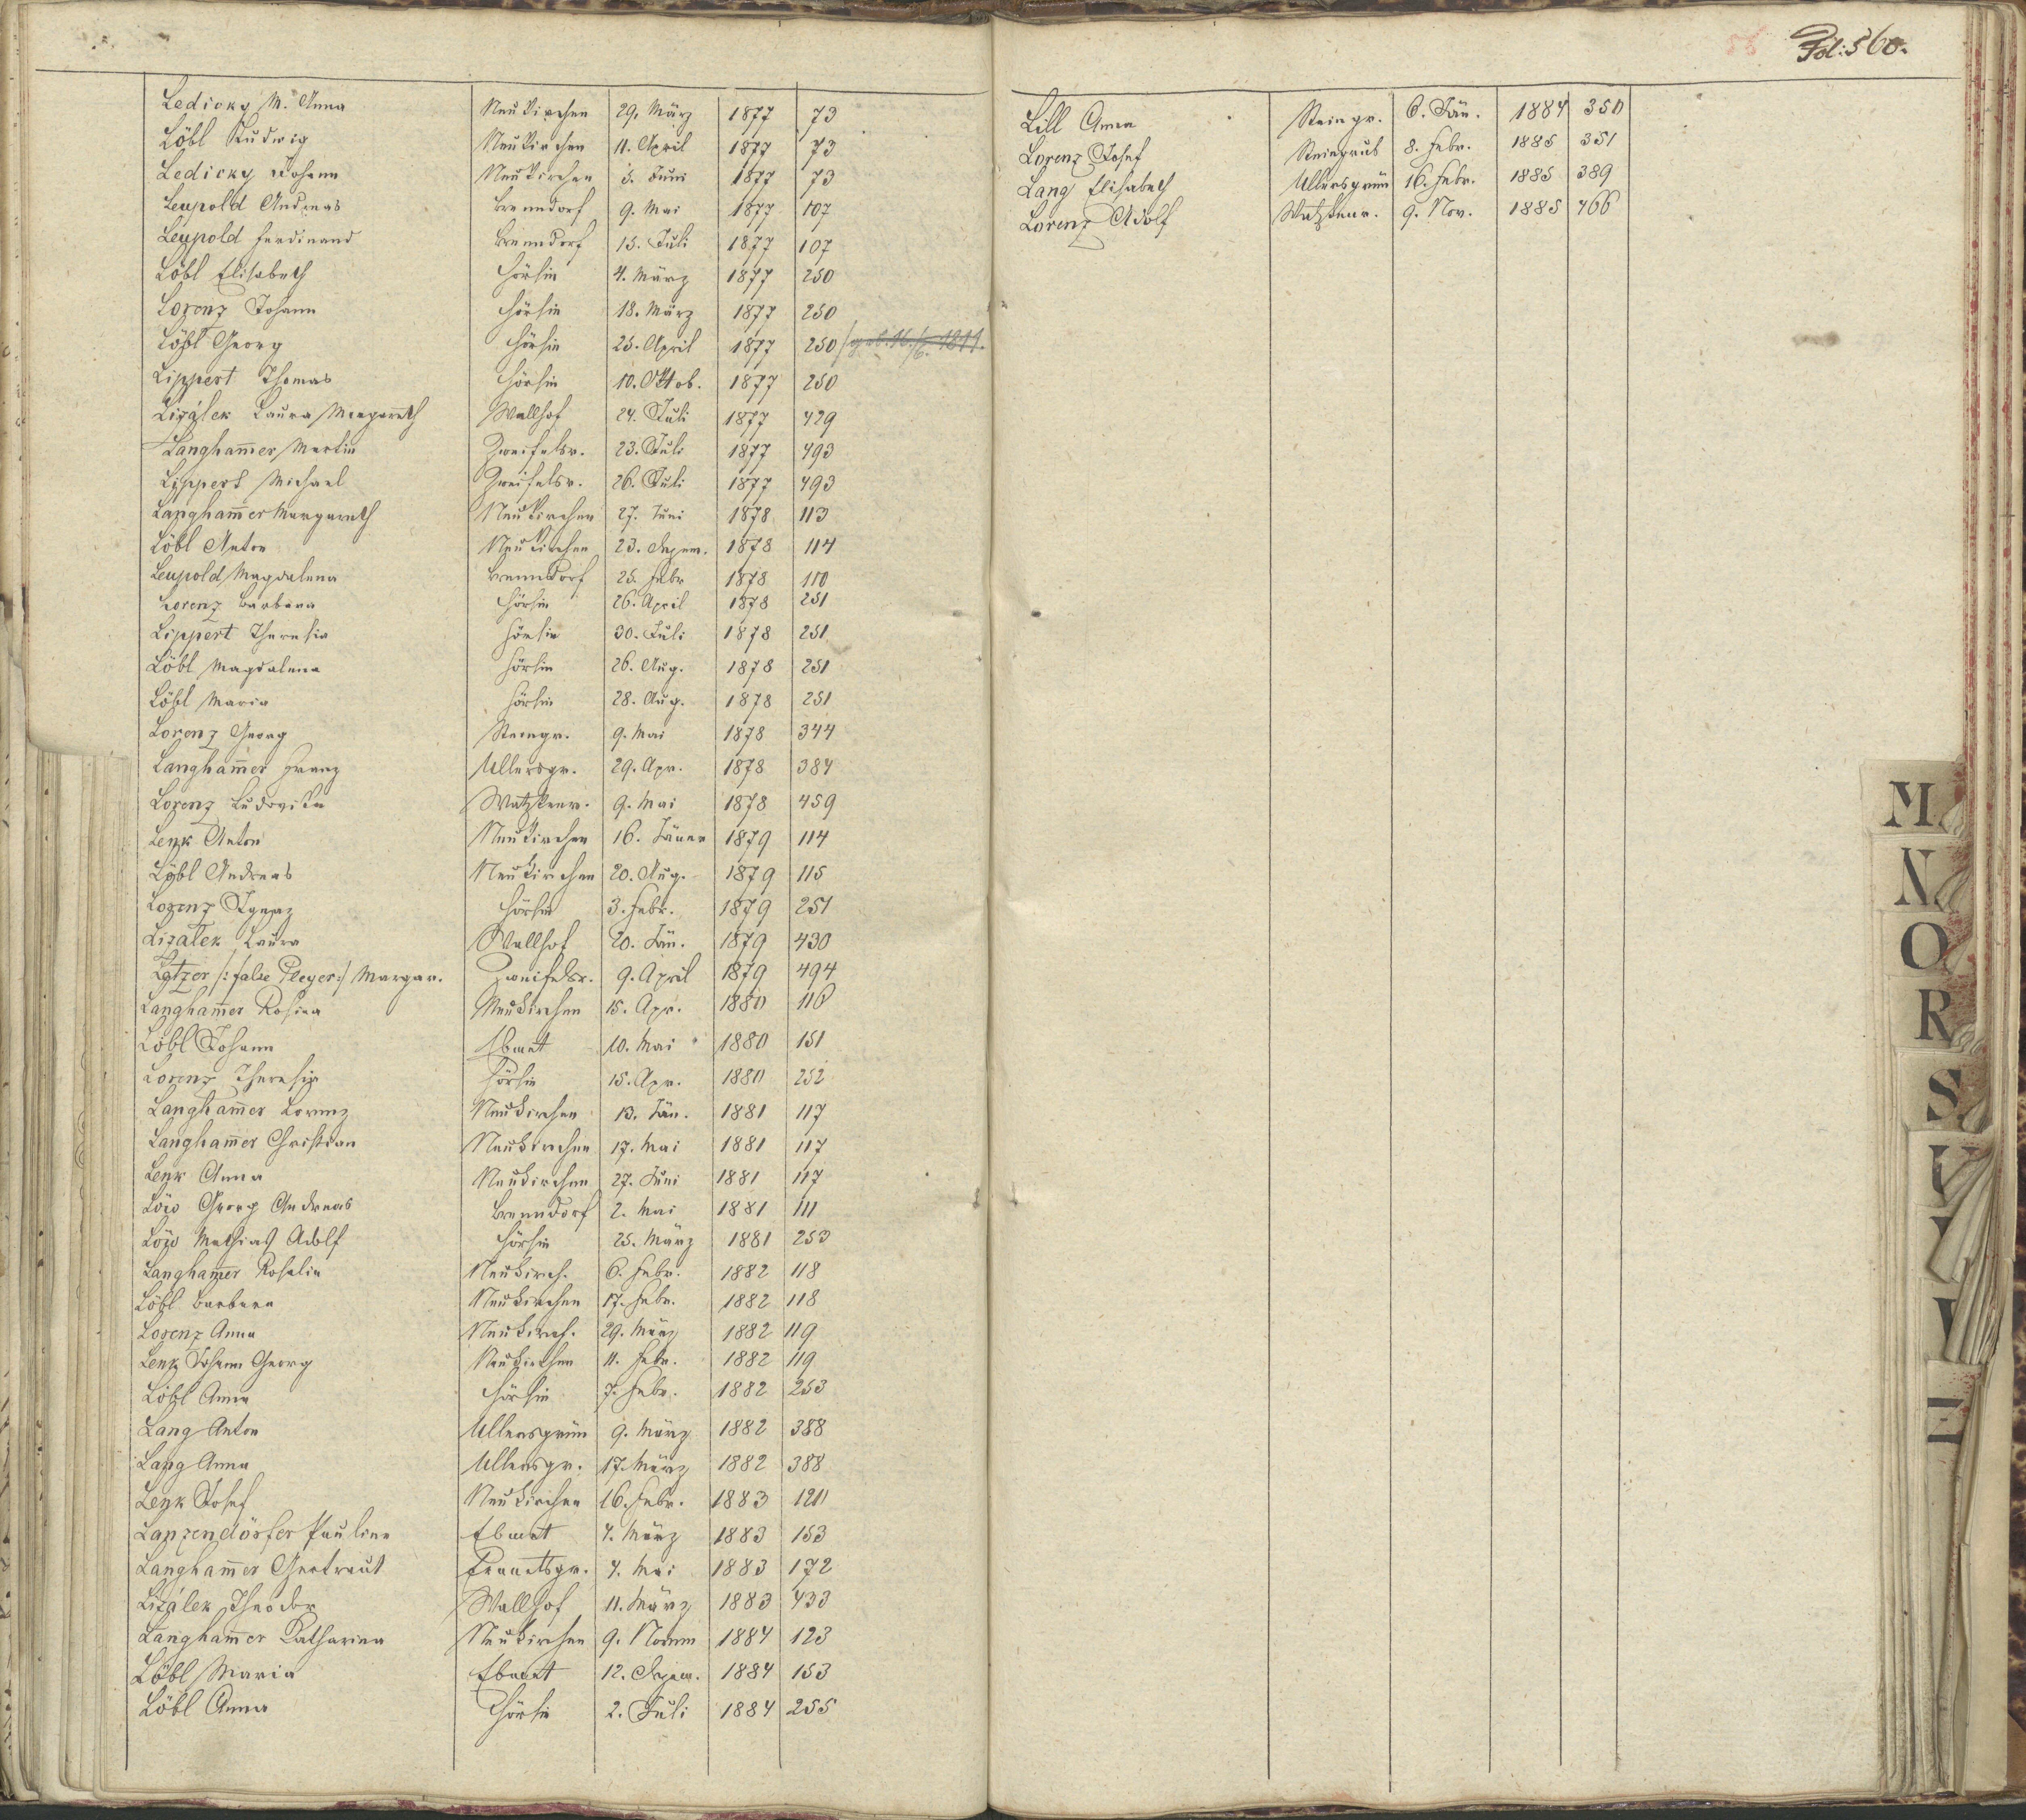 Ledicky M. Anna Neukirchen 29. März 1877 73
Löbl Ludwig Neukirchen 11. April 1877 73
Ledicky Johann Neukirchen 5. Juni 1877 73
Leupold Andreas Brenndorf 9. Mai 1877 107
Leupold Ferdinand Brenndorf 15. Juli 1877 107
Löbl Elisabeth Hörsin 4. März 1877 250
Lorenz Johann Hörsin 18. März 1877 250
Löbl Georg Hörsin 25. April 1877 250
Lippert Thomas Hörsin 10. Oktob. 1877 250
Lizálek Laura Margareth Wallhof 24. Juli 1877 429
Langham̄er Martin Zweifelsr. 23. Juli 1877 493
Lippert Michael Zweifelsr. 26. Juli 1877 493
Langham̄er Margareth Neukirchen 27. Juni 1878 113
Löbl Anton Neukirchen 23. Dezem. 1878 114
Leupold Magdalena Brenndorf 25. Febr 1878 110
Lorenz Barbara Hörsin 26. April 1878 251
Lippert Theresia Hörsin 30. Juli 1878 251
Löbl Magdalena Hörsin 26. Aug. 1878 251
Löbl Maria Hörsin 28. Aug. 1878 251
Lorenz Georg Steingr. 9. Mai 1878 344
Langham̄er Franz Ullersgr. 29. Apr. 1878 384
Lorenz Ludovika Watzkenr. 9. Mai 1878 459
Lenk Anton Neukirchen 16. Jäner 1879 114
Löbl Andreas Neukirchen 20. Aug. 1879 115
Lorenz Ignaz Hörsin 3. Febr. 1879 251
Lizalek Laura Wallhof 20. Jän. 1879 430
/: false Pleyer :/ Margar. Zweifelsr. 9. April 1879 494
Langham̄er Rosina Neukirchen 15. Apr. 1880 116
Löbl Johann Ebmet 10. Mai 1880 151
Lorenz Theresia Hörsin 15. Apr. 1880 252
Langham̄er Lorenz Neukirchen 13. Jän. 1881 117
Langham̄er Christian Neukirchen 17. Mai 1881 117
Lenk Anna Neukirchen 27. Juni 1881 117
Löw Georg Andreas Brenndorf 2. Mai 1881 111
Löw Mathias Adolf Hörsin 25. März 1881 253
Langham̄er Rosalia Neukirch. 6. Febr. 1882 118
Löbl Barbara Neukirchen 17. Febr. 1882 118
Lorenz Anna Neukirch. 29. März 1882 119
Lenk Johann Georg Neukirchen 11. Febr. 1882 119
Löbl Anna Hörsin 7. Febr. 1882 253
Lang Anton Ullersgrün 9. März 1882 388
Lang Anna Ullersgr. 17. März 1882 388
Lenk Josef Neukirchen 16. Febr. 1883 120
Lanzendörfer Pauline Ebmet 4. März 1883 153
Langham̄er Gertraut 4. Mai 1883 172
Lizálek Theodor Wallhof 11. März 1883 433
Langham̄er Katharina Neukirchen 9. Novem 1884 123
Löbl Maria Ebmet 12. Dezem. 1884 153
Löbl Anna Hörsin 2. Juli 1884 255
Fol: 560.
Lill Anna Steingr. 6. Jän. 1884 350
Lorenz Josef Steingrub 8. Febr. 1885 351
Lang Elisabeth Ullersgrün 16. Febr. 1885 389
Lorenz Adolf Watzkenr. 9. Nov. 1885 466
M
N
O
R
S